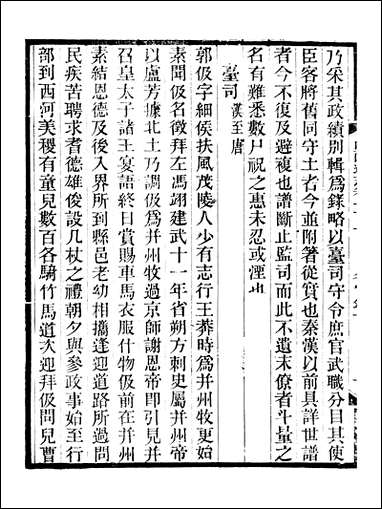 乃采其政績別輯爲錄略以臺司守令庶官武職分目其使
臣客將舊同守土者今並附著從實也秦漢以前具詳世譜
者今不復及避複也譜斷止監司而此不遺末僚者斗量之
名有難悉數尸祝之惠未忍或湮也
臺司 漢至唐
郭伋字細侯扶風茂陵人少有志行王莽時爲并州牧更始
素聞伋名徵拜左馮翊建武十一年省朔方刺史屬并州帝
以盧芳據北土乃調伋爲并州牧過京師謝恩帝即引見并
召皇太子諸王宴語終日賞賜車馬衣服什物伋前在并州
素結恩德及後入界所到縣邑老幼相攜逢迎道路所過問
民疾苦聘求耆德雄俊設几杖之禮朝夕與參政事始至行
部到西河美稷有童兒數百各騎竹馬道次迎拜伋問兒曹